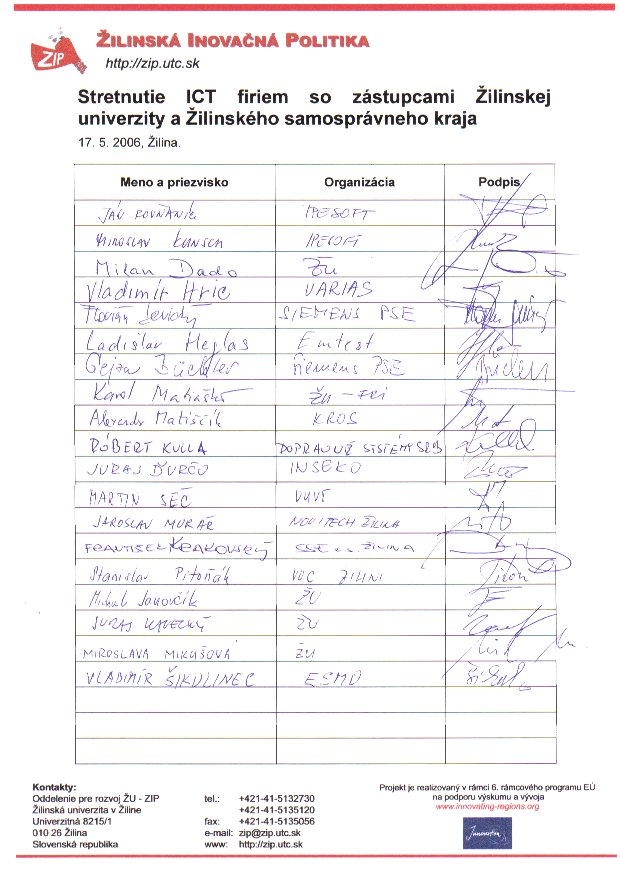 ŽILINSKÁ INOVAČNÁ POLITIKA
ZIP
http://zip.utc.sk
Stretnutie ICT firiem so zástupcami Žilinskej
univerzity a Žilinského samosprávneho kraja
17. 5. 2006, Žilina.
Meno a priezvisko Organizácia Podpis
JÁN ROVŇANÍK IPESOFT
MIROSLAV IPESOFT
Milan Dado ŽU
Vladimír Hric VARIAS
Florián SIEMENS PSE
Ladislav Heglas Emtest
Gejza Büchler Siemens PSE
Karol Matiaško ŽU - FRI
Alexander Matiščík KROS
RÓBERT KULLA DOPRAVNÉ SYSTÉMY
JURAJ ĎURČO INSEKO
MARTIN SÉČ VUVT
JAROSLAV MURÁŇ NOVITECH ŽILINA
FRANTIŠEK KRAKOVSKÝ SSE ŽILINA
Stanislav Pitoňák VÚC ŽILINA
Michal Janovčík ŽU
JURAJ ŽU
MIROSLAVA MIKUŠOVÁ ŽU
VLADIMÍR ŠIKULINEC ESMO
Kontakty:
Oddelenie pre rozvoj ŽU - ZIP tel.: +421-41-5132730
Žilinská univerzita v Žiline +421-41-5135120
Univerzitná 8215/1 fax: +421-41-5135056
010 26 Žilina e-mail: zip@zip.utc.sk
Slovenská republika www: http://zip.utc.sk
Projekt je realizovaný v rámci 6. rámcového programu EÚ
na podporu výskumu a vývoja
www.innovating-regions.org